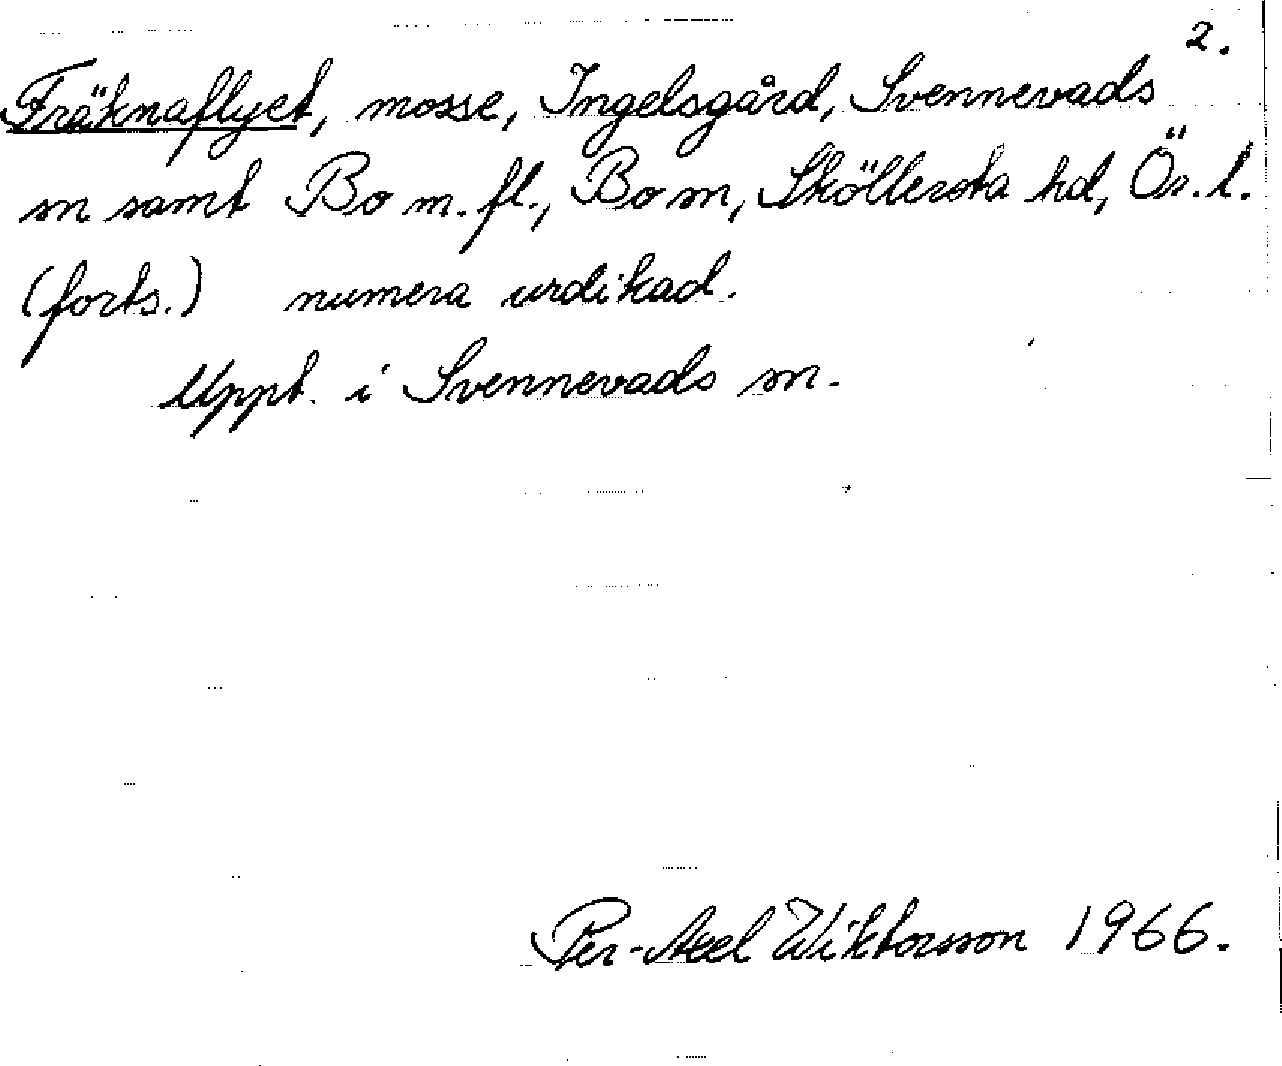 2.
Fräknaflyet, mosse, Ingelsgård, Svennevads
sn samt Bo m. fl., Bo sn, Sköllersta hd, Ör. l.
(forts.) numera urdikad.
Uppt. i Svennevads sn.
Per-Axel Wiktorsson 1966.